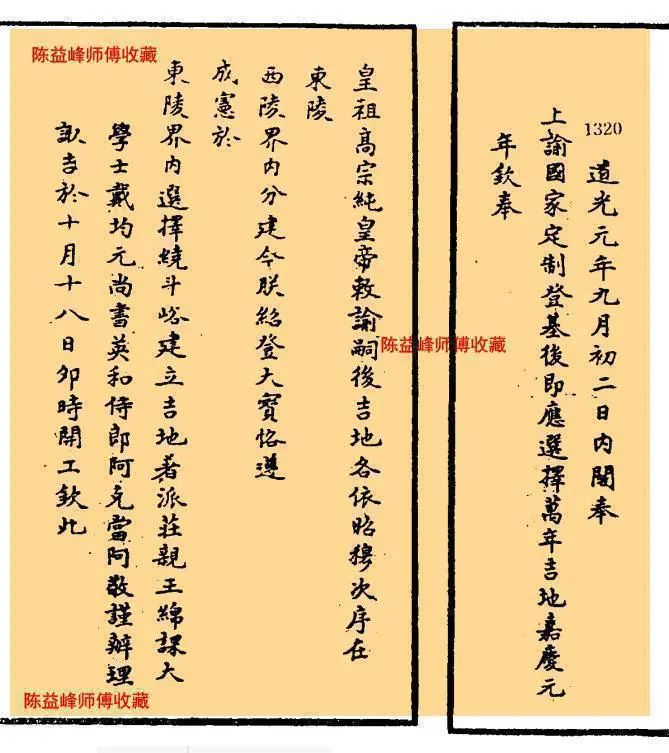 1320
道光元年九月初二日内閣奉
上諭國家定制登基後即應選擇萬年吉地嘉慶元
年欽奉
皇祖高宗純皇帝敕諭嗣後吉地各依昭穆次序在
東陵
西陵界内分建今朕紹登大寶恪遵
成憲於
東陵界内選擇繞斗峪建立吉地着派莊親王綿課大
學士戴均元尚書英和侍郎阿克當阿敬謹辦理
諏吉於十月十八日卯時開工欽此
陈益峰师傅收藏
陈益峰师傅收藏
陈益峰师傅收藏